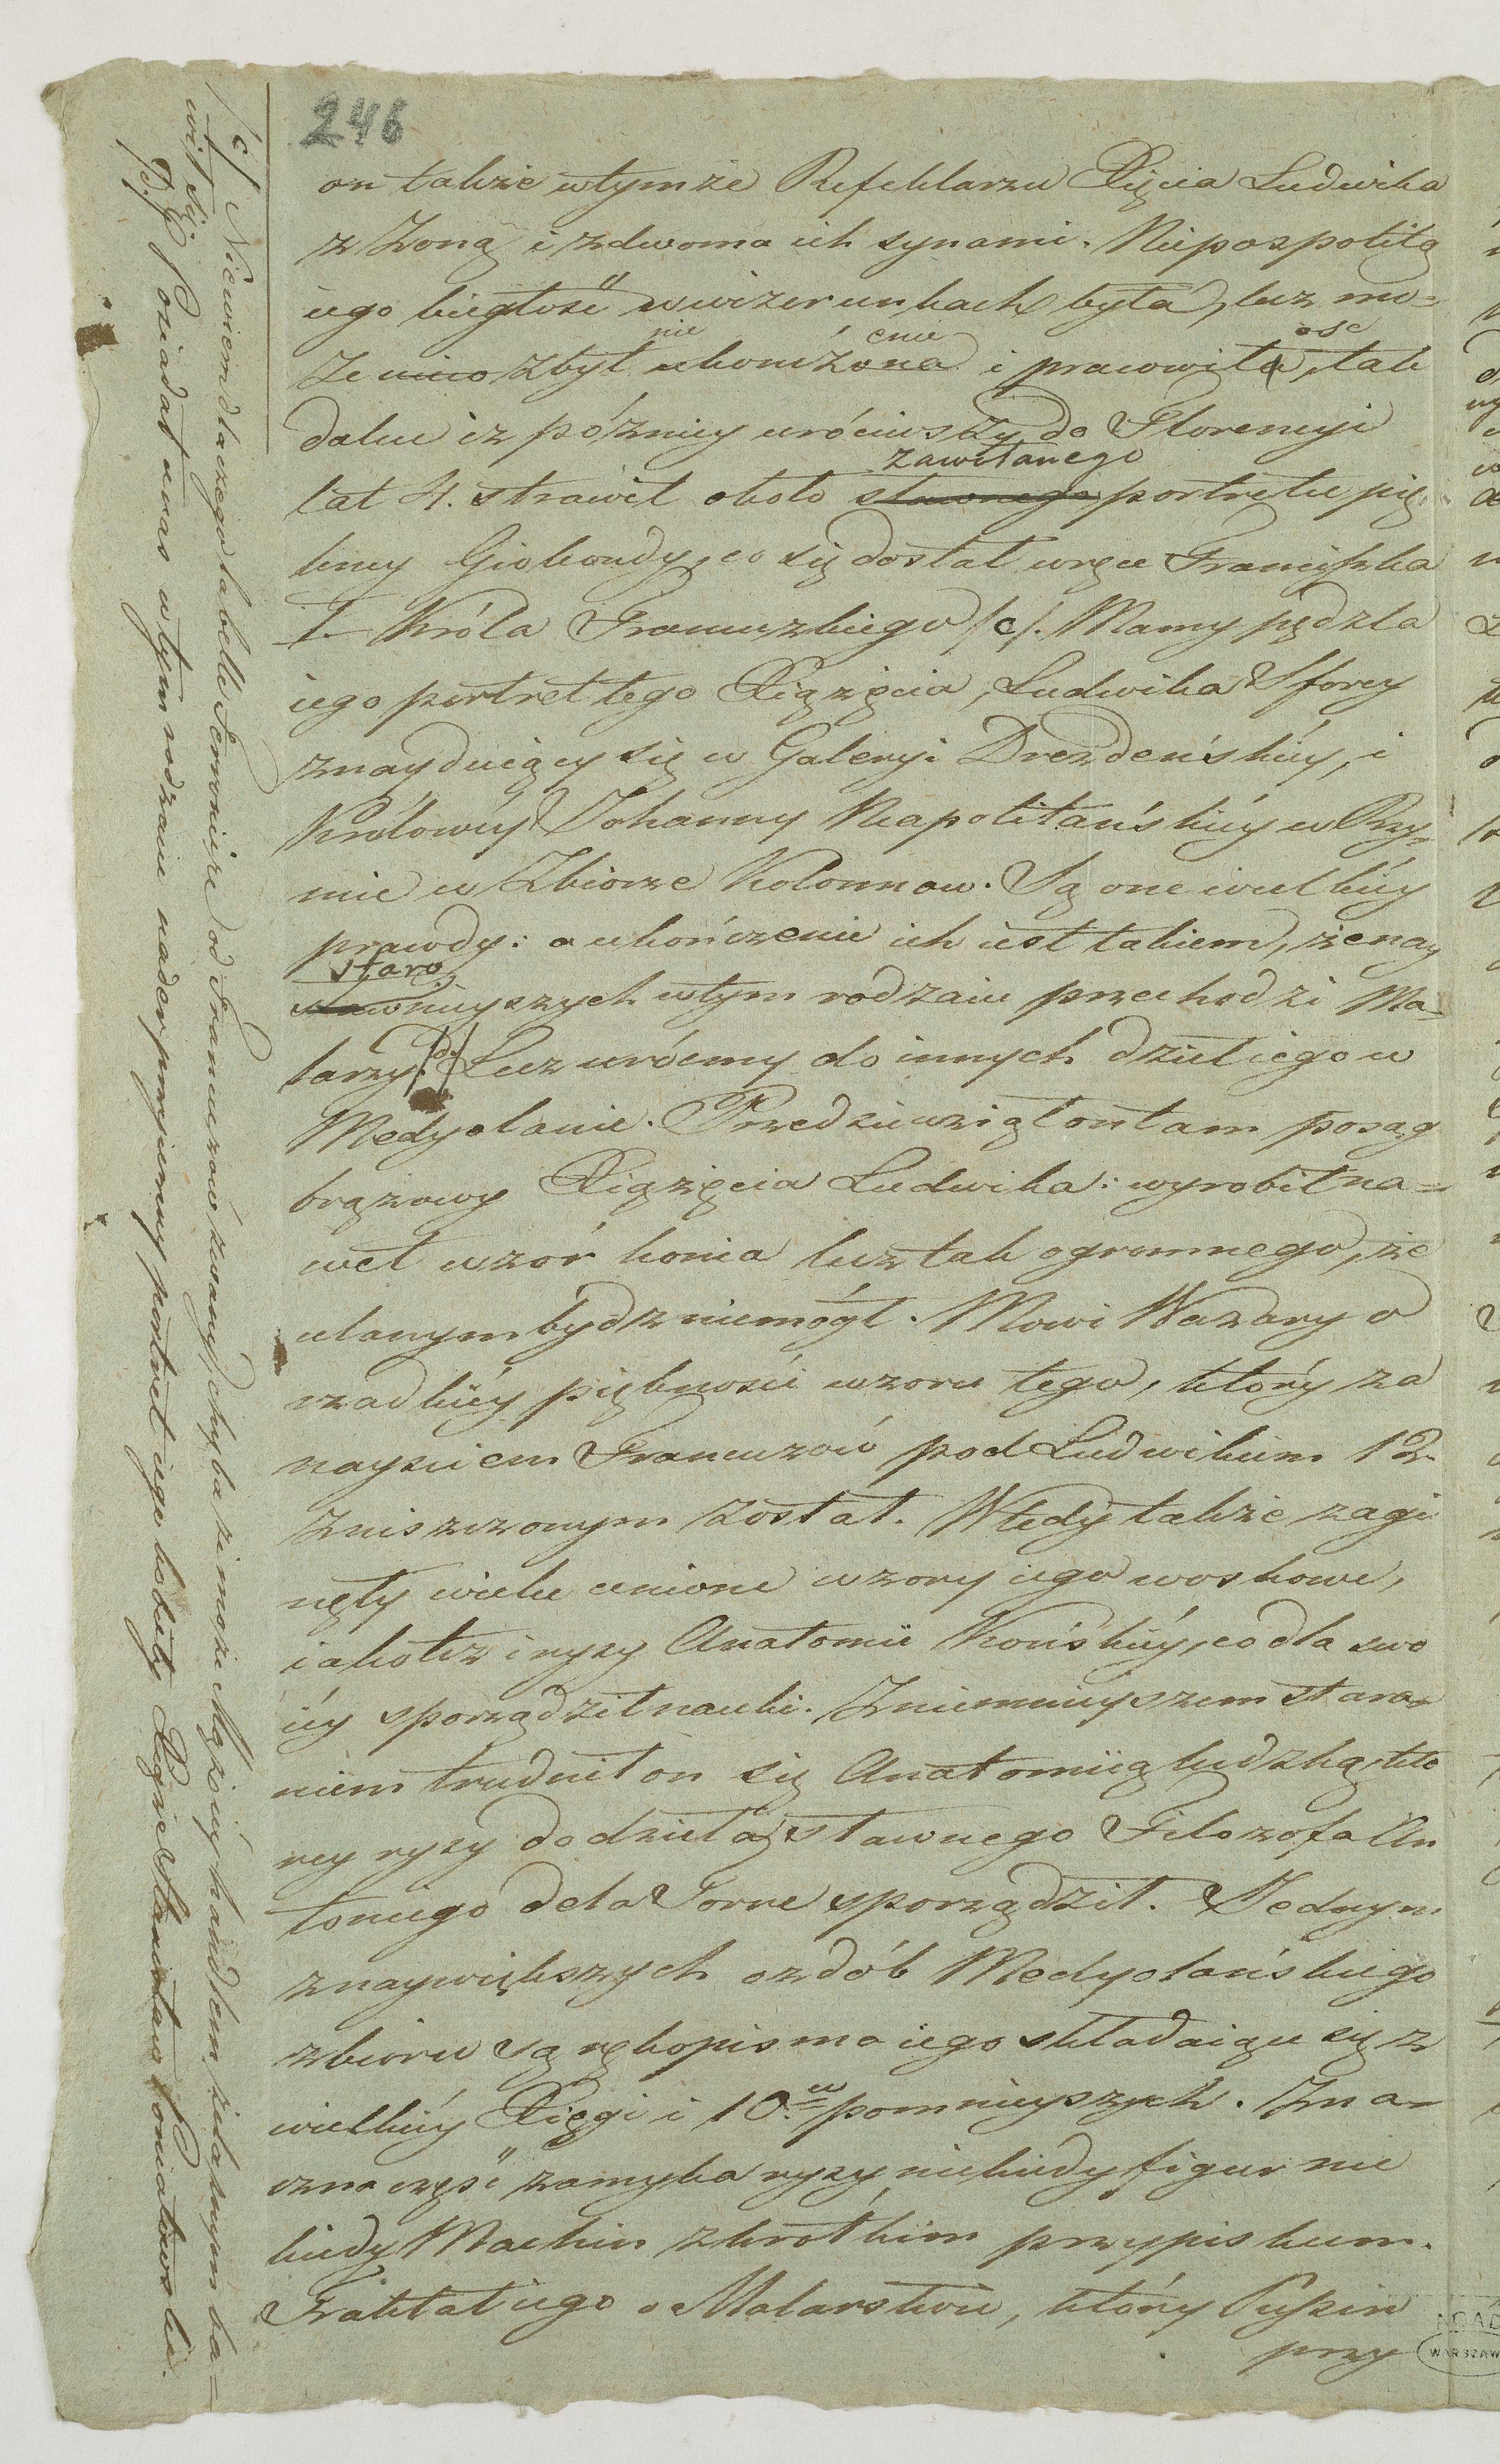 246
on także wtymże Refektarzu Xięcia Ludwika
z Żoną i zdwoma ich synami. Niepospolitą
iego biegłość w wizerunkach była, lecz mo=
że nie zbyt ukończona i pracowita, tak
nie cnie ość
dalece iż późniey wróciwszy do Florencyi
zawołanego
lat 4. strawił około sławnego portretu pię
kney Giokondy, co się dostał wręce Franciszka
I. Króla Francuzkiego /c/. Mamy pędzla
iego portret tego Xiążęcia, Ludwika Sforcy
znayduiący się w Galeryi Drezdeńskiéy, i
Królowéy Johanny Neapolitańskiéy w Rzy=
mie w Zbiorze Kolonnow. Są one wielkiéy
prawdy: a ukończenie ich iest takiem, że nay
staro
sławnieyszych wtym rodzaiu przechodzi Ma=
larzy. /d/ Lecz wróćmy do innych dzieł iego w
Medyolanie. Przedsiewziął on tam posąg
brązowy Xiążęcia Ludwika: wyrobił na=
wet wzór konia lecz tak ogromnego, że
ulanym bydz niemógł. Mowi Wazary o
rzadkiéy piękności wzoru tego, który za
nayściem Francuzów pod Ludwikiem 12.
zniszczonym został. Wtedy także zagi
nęły wielce cenione wzory iego woskowe,
iakoteż i rysy Anatomii Końskiéy, co dla swo
iéy sporządził nauki. Zniemnieyszem stara=
niem trudnił on się Anatomiią ludzką, któ
rey rysy do dzieła sławnego Filozofa An
toniego de la Torre sporządził. Jednym
znaywiększych ozdób Medyolańskiego
zbioru są rękopisma iego składaiące się z
wielkiéy Xięgi i 10.u pomnieyszych. Zna=
czna część zamyka rysy niekiedy figur nie
kiedy Machin zkrótkim przypiskiem.
Traktat iego o Malarstwie, który Pussin
przy
/c/ Niewiem dlaczego la belle Ferroniere od Francuzów zwanéy, chyba że może Mąż iéy handlem żelaznym ba=
wił się.
D.) Posiadał u nas wtym rodzaiu nader przyiemny portret iego kobiéty Xiąże Stanisław Poniatowski.